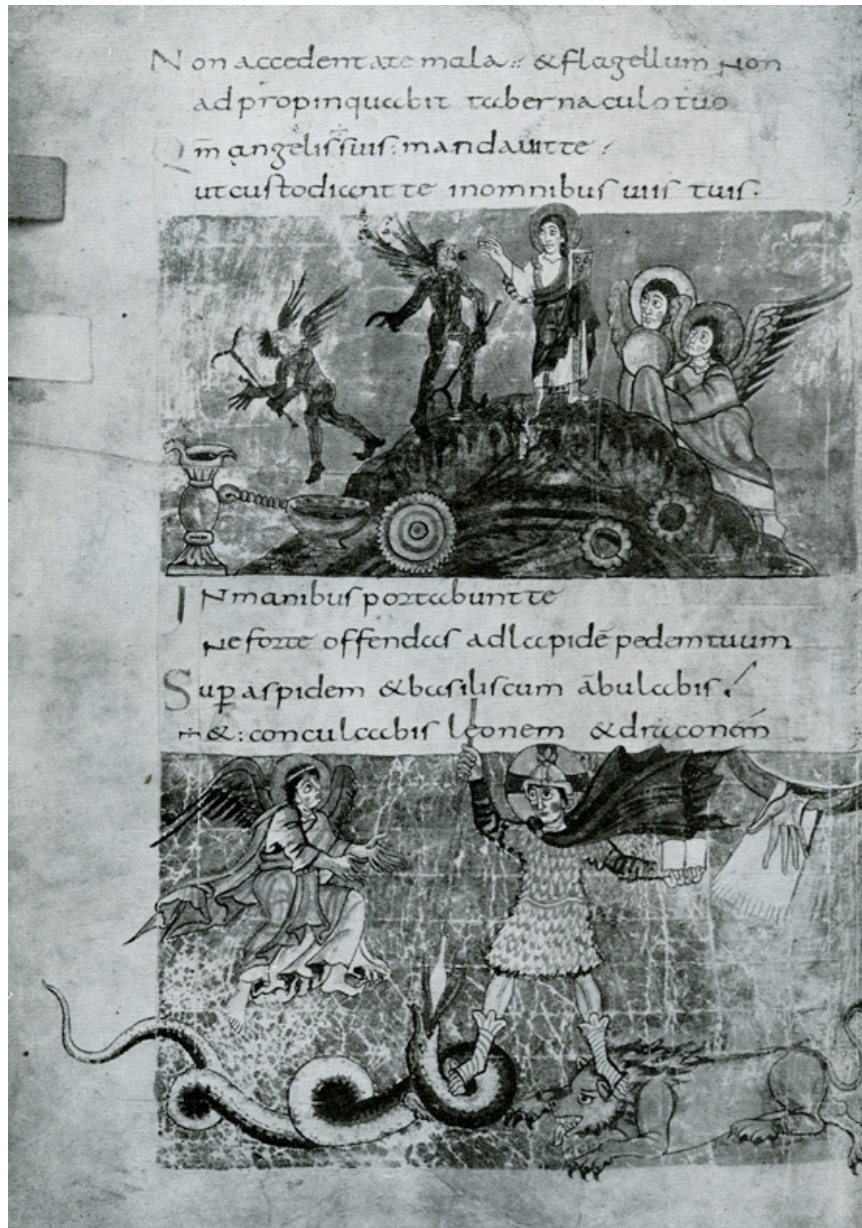 Non accedent ate mala: & flagellum non
adpropinquabit tabernaculo tuo
Qm̄ angelis suis: mandavit te
ut custodiant te in omnibus uiis tuis.
IN manibus portabunt te
ne forte offendas ad lapidē pedem tuum
Sup̄ aspidem & basiliscum ābulabis
& : conculcabis leonem & draconem